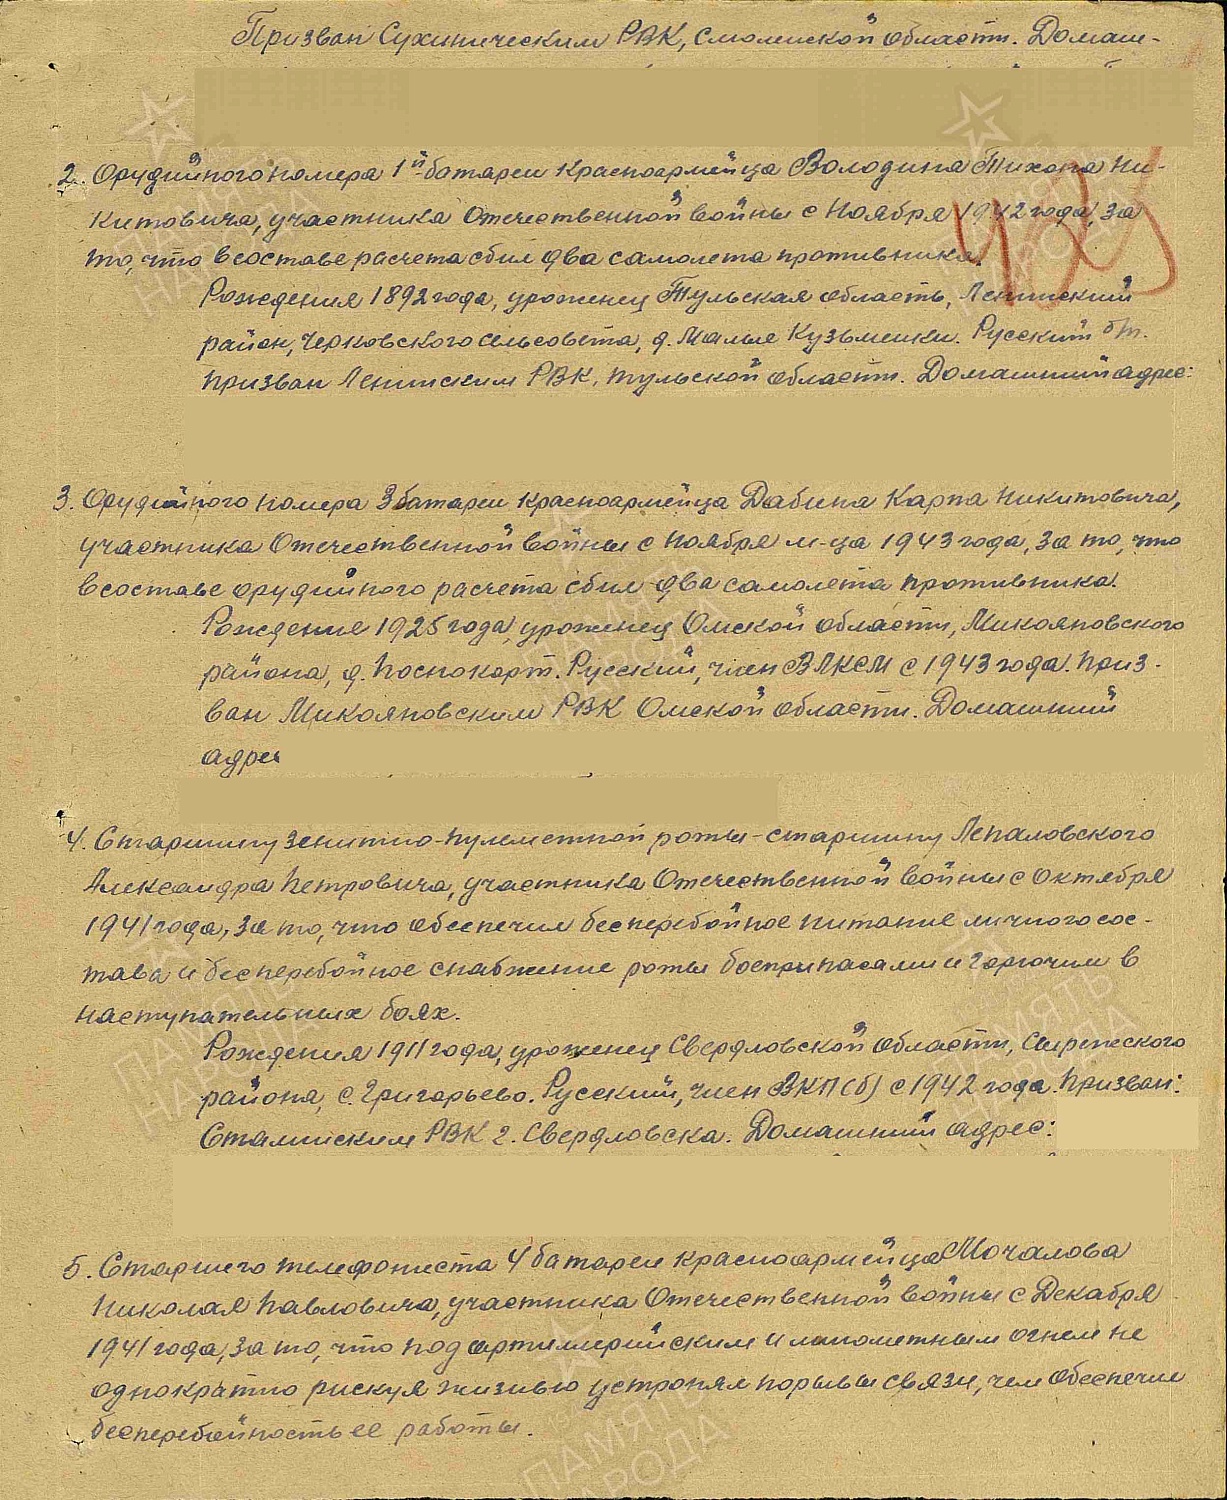 Призван Сухиническим РВК, Смоленской области. Домаш-
2. Орудийного номера 1й батареи красноармейца Володина Тихона Ни-
китовича, участника Отечественной войны с ноября 1942 года, за
то, что в составе расчета сбил два самолета противника.
Рождения 1892 года, уроженец Тульская область, Ленинский
район, Черковского сельсовета, д. Малые Кузьменки. Русский б/п.
Призван Ленинским РВК, Тульской области. Домашний адрес:
3. Орудийного номера 3 батареи красноармейца Дабина Карпа Никитовича,
участника Отечественной войны с ноября м-ца 1943 года, за то, что
в составе орудийного расчета сбил два самолета противника.
Рождения 1925 года, уроженец Омской области, Микояновского
района, д. Поснокорт. Русский, член ВЛКСМ с 1943 года. Приз-
ван Микояновским РВК Омской области. Домашний
адрес
4. Старшину зенитно-пулеметной роты - старшину Лепаловского
Александра Петровича, участника Отечественной войны с октября
1941 года, за то, что обеспечил бесперебойное питание личного сос-
тава и бесперебойное снабжение роты боеприпасами и горючим в
наступательных боях.
Рождения 1911 года, уроженец Свердловской области,
района, с. Григорьево. Русский, член ВКП(б) с 1942 года. Призван:
Сталинским РВК г. Свердловска. Домашний адрес:
5. Старшего телефониста 4 батареи красноармейца Мочалова
Николая Павловича, участника Отечественной войны с Декабря
1941 года, за то, что под артиллерийским и минометным огнем не
однократно рискуя жизнью устронял порывы связи, чем обеспечил
бесперебойность ее работы.